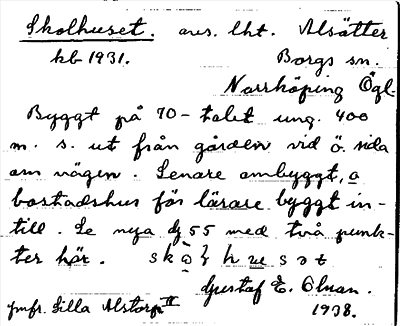 Skolhuset. avs. lht. Alsätter
kb 1931. Borgs sn.
Norrköping Ögl.
Byggt på 70-talet ung. 400
m. s. ut från gården vid ö. sida
om vägen. Senare ombyggt, o
bostadshus för lärare byggt in-
till. Se nya dj 55 med två punk-
ter här. skò̄l h u s ət
Gustaf E. Olman.
jmfr. Lilla Alstorp II 1938.